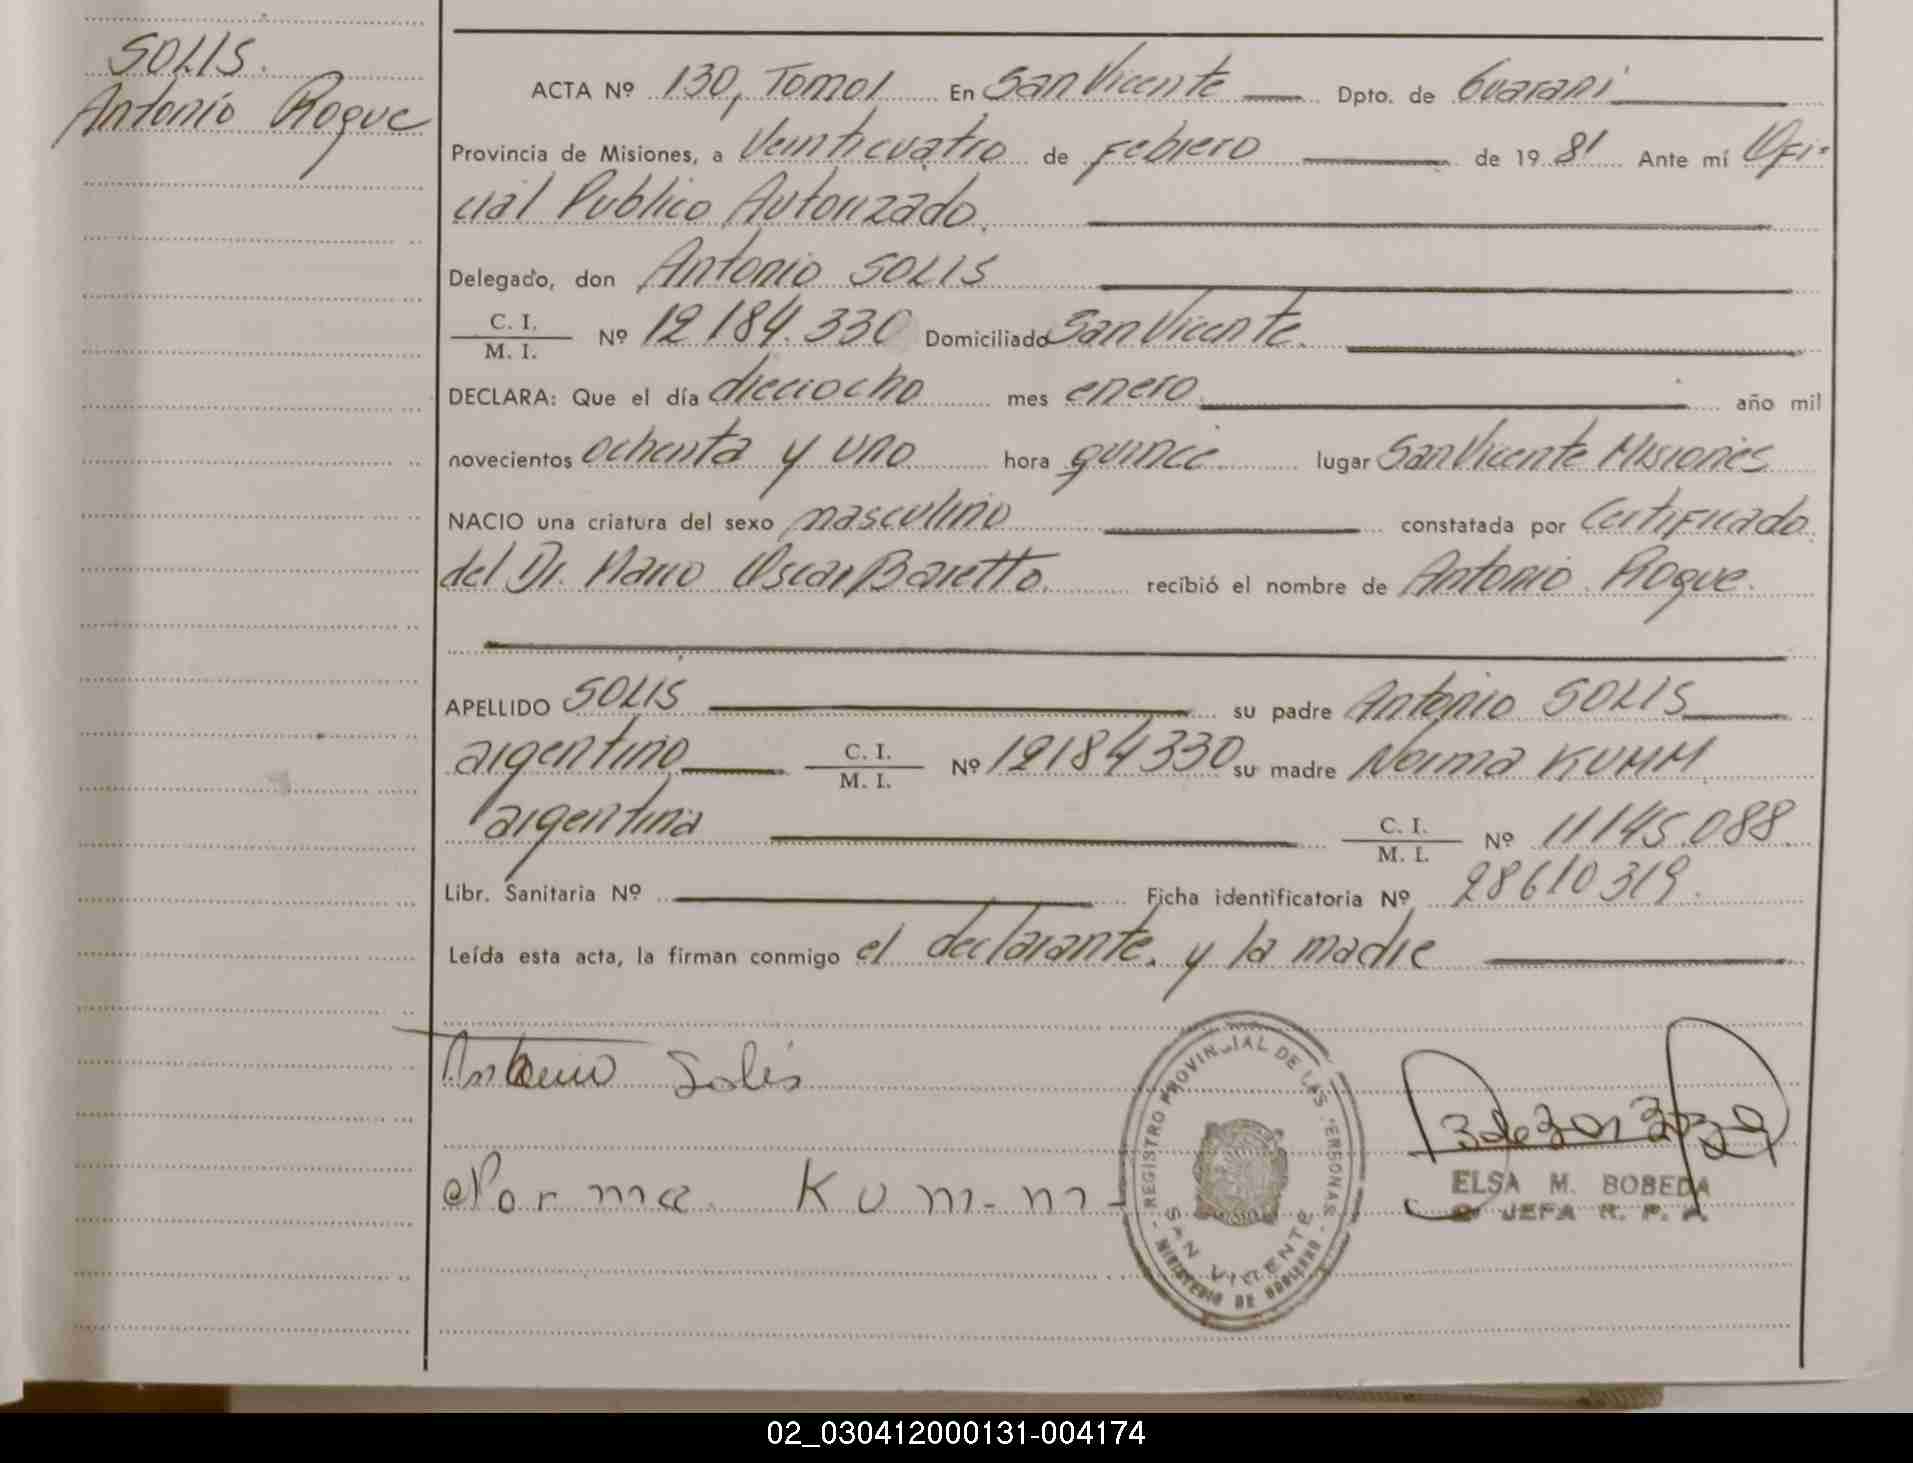 SOLIS.
Antonio Roque
ACTA Nº 130, Tomo I En San Vicente Dpto. de Guarani
Provincia de Misiones, a Veinticuatro de Febrero de 19 81 Ante mí Ofi-
cial Publico Autorizado.
Delegado, don Antonio SOLIS
C. I.
M. I. Nº 12184.330 Domiciliado San Vicente.
DECLARA: Que el día dieciocho mes enero año mil
novecientos ochenta y uno hora quince lugar San Vicente Misiones
NACIO una criatura del sexo masculino constatada por Certificado
del Dr. Mario Oscar Baretto. recibió el nombre de Antonio Roque.
APELLIDO SOLIS su padre Antonio SOLIS
argentino C. I.
M. I. Nº 12184330 su madre Norma KUMM
argentina C. I.
M. I. Nº 11145.088.
Libr. Sanitaria Nº Ficha identificatoria Nº 28610319.
Leída esta acta, la firman conmigo el declarante. y la madre
Antonio Solis
Norma Kumm
REGISTRO PROVINCIAL DE LAS PERSONAS
SAN VICENTE
MINISTERIO DE GOBIERNO
ELSA M. BOBEDA
JEFA R. P. P.
02_030412000131-004174